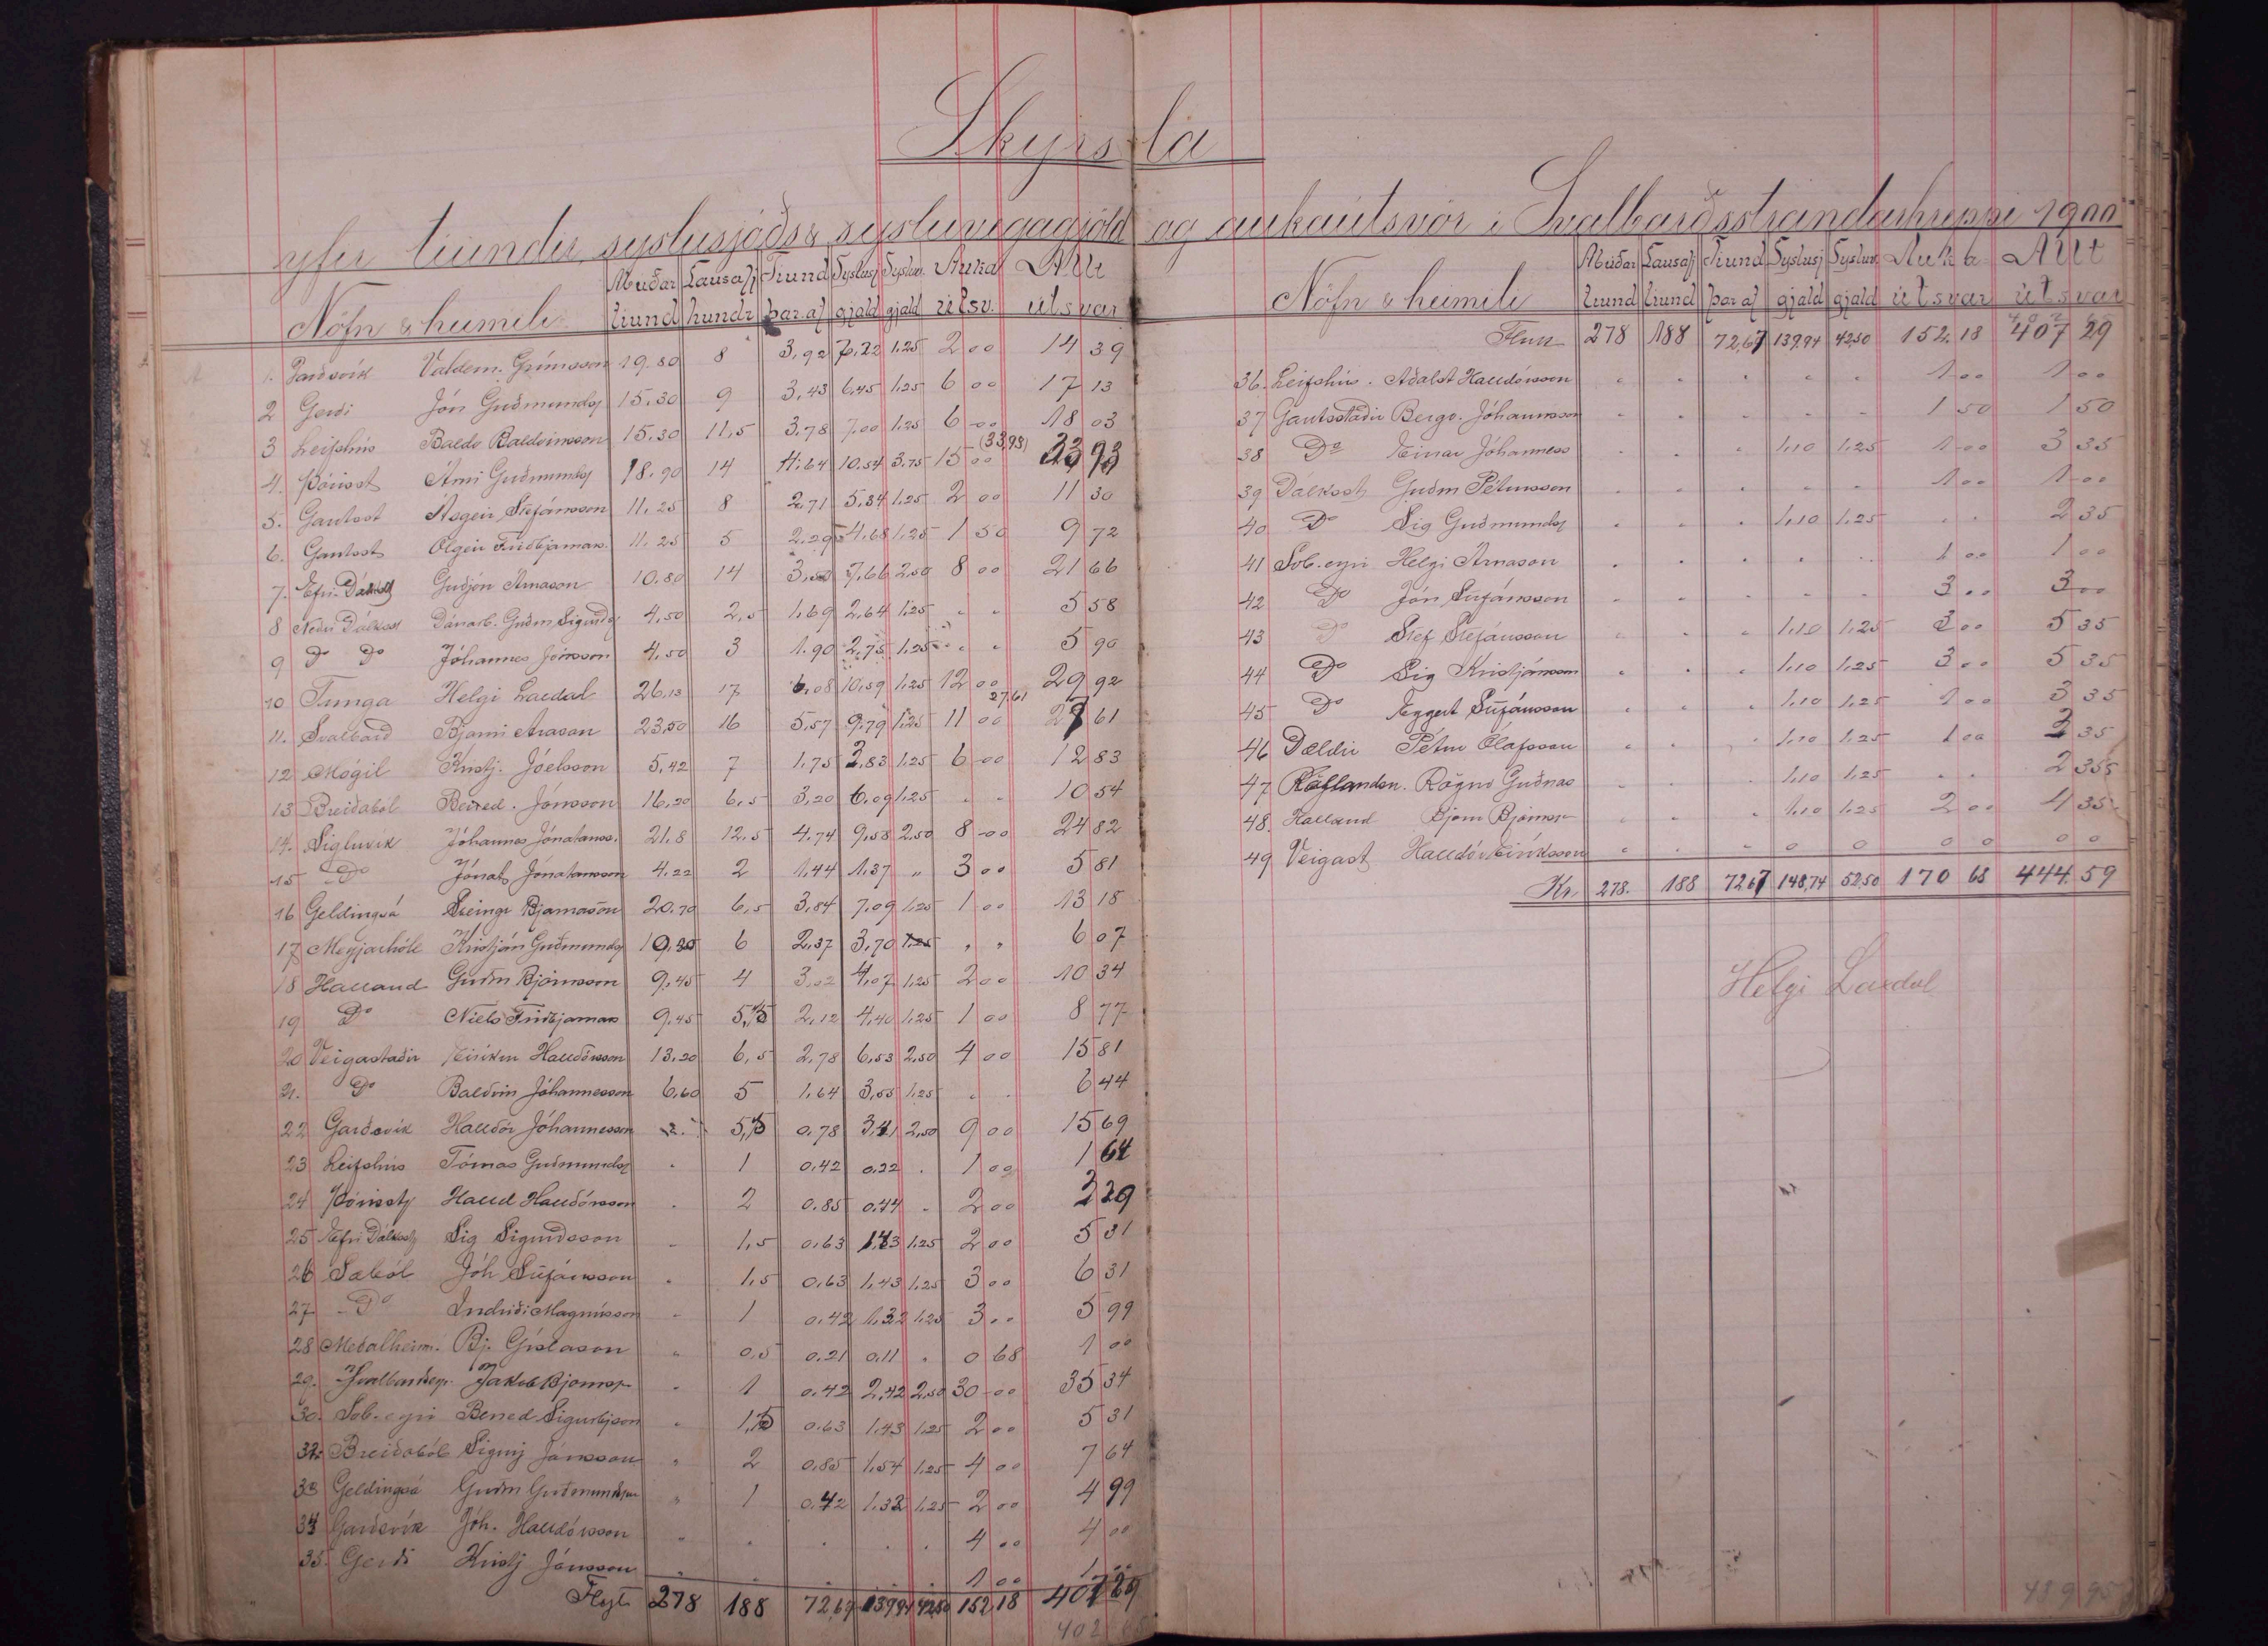 Skyrsla
yfir tíundir syslusjóðs & sysluvegagjöld og aukaútsvör í Svalbarðsstrandarhreppi 1900
Nöfn & heimili Ábúðar tíund Lausafj hundr Tíund þar af Syslusj gjald Sysluv. gjald Auka útsv. Allt útsvar
1. Garðsvík Valdem. Grímsson 19.80 8 3,92 7,22 1,25 2 00 14 39
2 Gerði Jón Guðmundss 15.30 9 3,43 6,45 1,25 6 00 17 13
3 Leifshús Baldv Baldvinsson 15.30 11,5 3,78 7,00 1,25 6 00 18 03
4. Þórisst Árni Guðmundss 18.90 14 4.64 10.54 3.75 15 00 (33,93) 33 93
5. Gautsst Ásgeir Stefánsson 11,25 8 2,71 5,34 1,25 2 00 11 30
6. Gautsst Olgeir Friðbjarnars. 11,25 5 2,29 4,68 1,25 1 50 9 72
7. Efri-Dálksst Guðjón Árnason 10,80 14 3,50 7,66 2,50 8 00 21 66
8 Neðri Dálksst Dánarb. Guðm Sigurðss 4,50 2,5 1,69 2,64 1,25 " " 5 58
9 Do Do Jóhannes Jónsson 4,50 3 1.90 2,75 1,25 " " 5 90
10 Tunga Helgi Laxdal 26,13 17 6,08 10,59 1,25 12 00 29 92
11. Svalbarð Bjarni Arason 23,50 16 5,57 9,79 1,25 11 00 27,61 27 61
12 Mógil Kristj. Jóelsson 5,42 7 1,75 3,83 1,25 6 00 12 83
13 Breiðaból Bened. Jónsson 16,20 6,5 3,20 6,09 1,25 " " 10 54
14. Sigluvík Jóhannes Jónatanss. 21,8 12,5 4.74 9,58 2,50 8 00 24 82
15 Do Jónat Jónatansson 4,22 2 1,44 1,37 " 3 00 5 81
16 Geldingsá Steingr Bjarnason 20.70 6,5 3,84 7,09 1,25 1 00 13 18
17 Meyjarhóll Kristján Guðmundss 10,80 6 2,37 3,70 1,25 " " 6 07
18 Halland Guðm Björnsson 9,45 4 3,02 4,07 1,25 2 00 10 34
19 Do Niels Friðbjarnars 9,45 5,5 2,12 4,40 1,25 1 00 8 77
20 Veigastaðir Eiríkur Halldórsson 13,20 6,5 2,78 6,53 2,50 4 00 15 81
21. Do Baldvin Jóhannesson 6,60 5 1,64 3,55 1,25 " " 6 44
22 Garðsvík Halldór Jóhannesson 5,5 0,78 3,41 2,50 9 00 15 69
23 Leifshús Tómas Guðmundss " 1 0,42 0,22 " 1 00 1 64
24 Þórisst Halld Halldórsson " 2 0.85 0,44 " 2 00 3 29
25 Efri Dálksst Sig Sigurðsson " 1,5 0,63 1,43 1,25 2 00 5 31
26 Sæból Jóh Stefánsson " 1,5 0,63 1,43 1,25 3 00 6 31
27 Do Indriði Magnússon " 1 0,42 1,32 1,25 3 00 5 99
28 Meðalheimr. Bj. Gíslason " 0,5 0.21 0,11 " 0 68 1 00
29. Svalbarðseyr. Jakob Björnss " 1 0.42 2,42 2,50 30 00 35 34
30. Svb.-eyri Bened Sigurbjson " 1,5 0.63 1,43 1,25 2 00 5 31
32. Breiðaból Sigurj Jónsson " 2 0.85 1,54 1,25 4 00 7 64
33 Geldingsá Guðm Guðmundsson " 1 0,42 1,32 1,25 2 00 4 99
34 Garðsvík Jóh. Halldórsson " " " " " 4 00 4 00
35. Gerði Kristj Jónsson " " " " " 1 00 1 00
Flyt 278 188 72,67 139,94 42,50 152 18 407 29
402
Nöfn & heimili Ábúðar tíund Lausafj tíund Tíund þar af Syslusj gjald Sysluv gjald Auka útsvar Allt útsvar
Flutt 278 188 72,67 139,94 42,50 152,18 407 29
36. Leifshús. Aðalst Halldórsson " " " " " 1 00 1 00
37 Gautsstaðir Bergv. Jóhannsson " " " " " 1 50 1 50
38 Do Einar Jóhanness " " " 1,10 1,25 1 00 3 35
39 Dálksst Guðm Pétursson " " " " " 1 00 1 00
40 Do Sig Guðmundss " " " 1,10 1,25 " " 2 35
41 Svb.-eyri Helgi Árnason " " " " " 1 00 1 00
42 Do Jón Stefánsson " " " " " 3 00 3 00
43 Do Stef Stefánsson " " " 1,10 1,25 3 00 5 35
44 Do Sig Kristjánsson " " " 1,10 1,25 3 00 5 35
45 Do Eggert Stefánsson " " " 1,10 1,25 1 00 3 35
46 Dældir Pétur Ólafsson " " " 1,10 1,25 1 00 3 35
47 Rögnv Guðnas " " " 1,10 1,25 " " 2 35
48. Halland Björn Björnss " " " 1,10 1,25 2 00 4 35
49 Veigast Halldór Eiríksson " " " 0 0 0 0 0 0
Kr. 278. 188 72 67 148,74 52,50 170 68 444.59
Helgi Laxdal
489 95